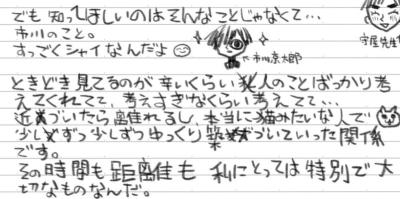 でも 知ってほしいのはそんなことじゃなくて…
守屋先生
市川のこと。
すっごくシャイなんだよ
←市川京太郎
ときどき見てるのが辛いくらい人のことばっかり考
えてくれてて、考えすぎなくらい考えてて…
近づいたら離れるし、本当に猫みたいな人で
少しずつ少しずつゆっくり築づいていった関係
です。
その時間も距離も 私にとっては特別で大
切なものなんだ。